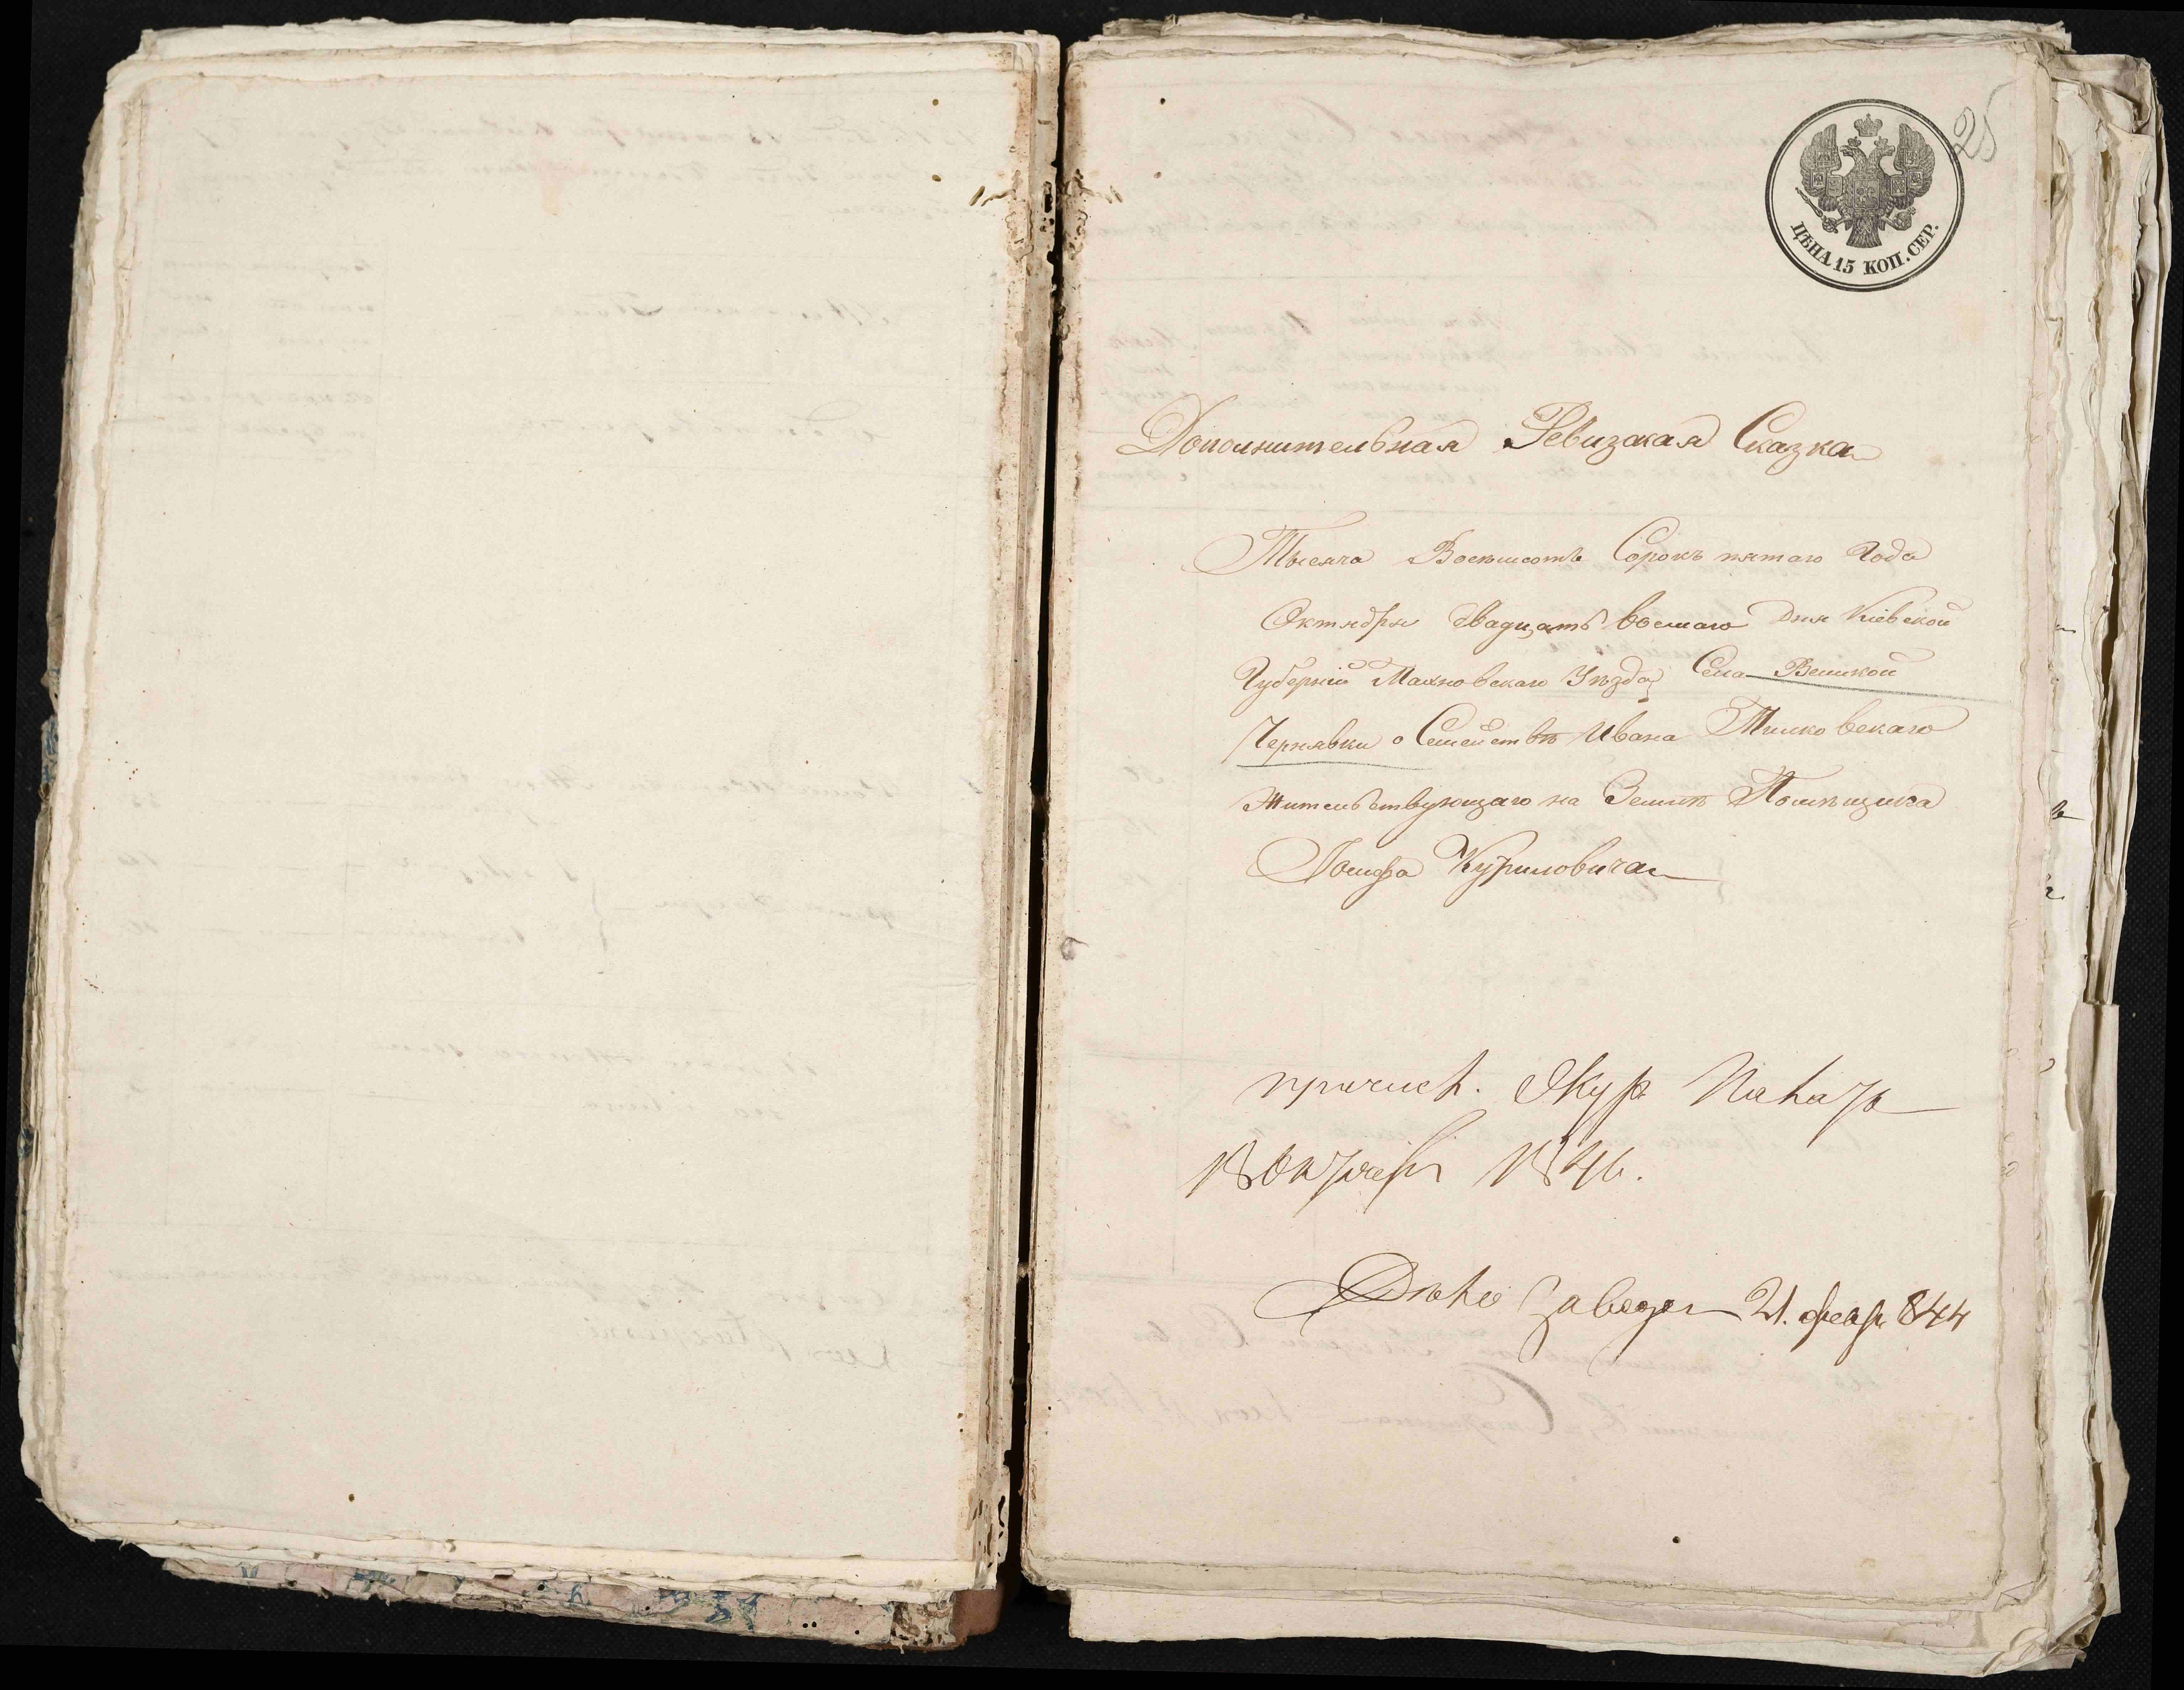 25
ЦѢНА 15 КОП. СЕР.
Дополнительная Ревизкая Сказка
Тысяча Восемьсотъ Сорокъ пятаго Года
Октября двадцать восмаго Дня Кіевской
Губерніи Махновскаго Уѣзда Села Великой
Чернявки о Семействѣ Ивана Тилковскаго
Жительствующаго на Землѣ Помѣщика
Іосифа Куриловича
причисл.
18 Октября 1846.
Дѣло 21. февр 844